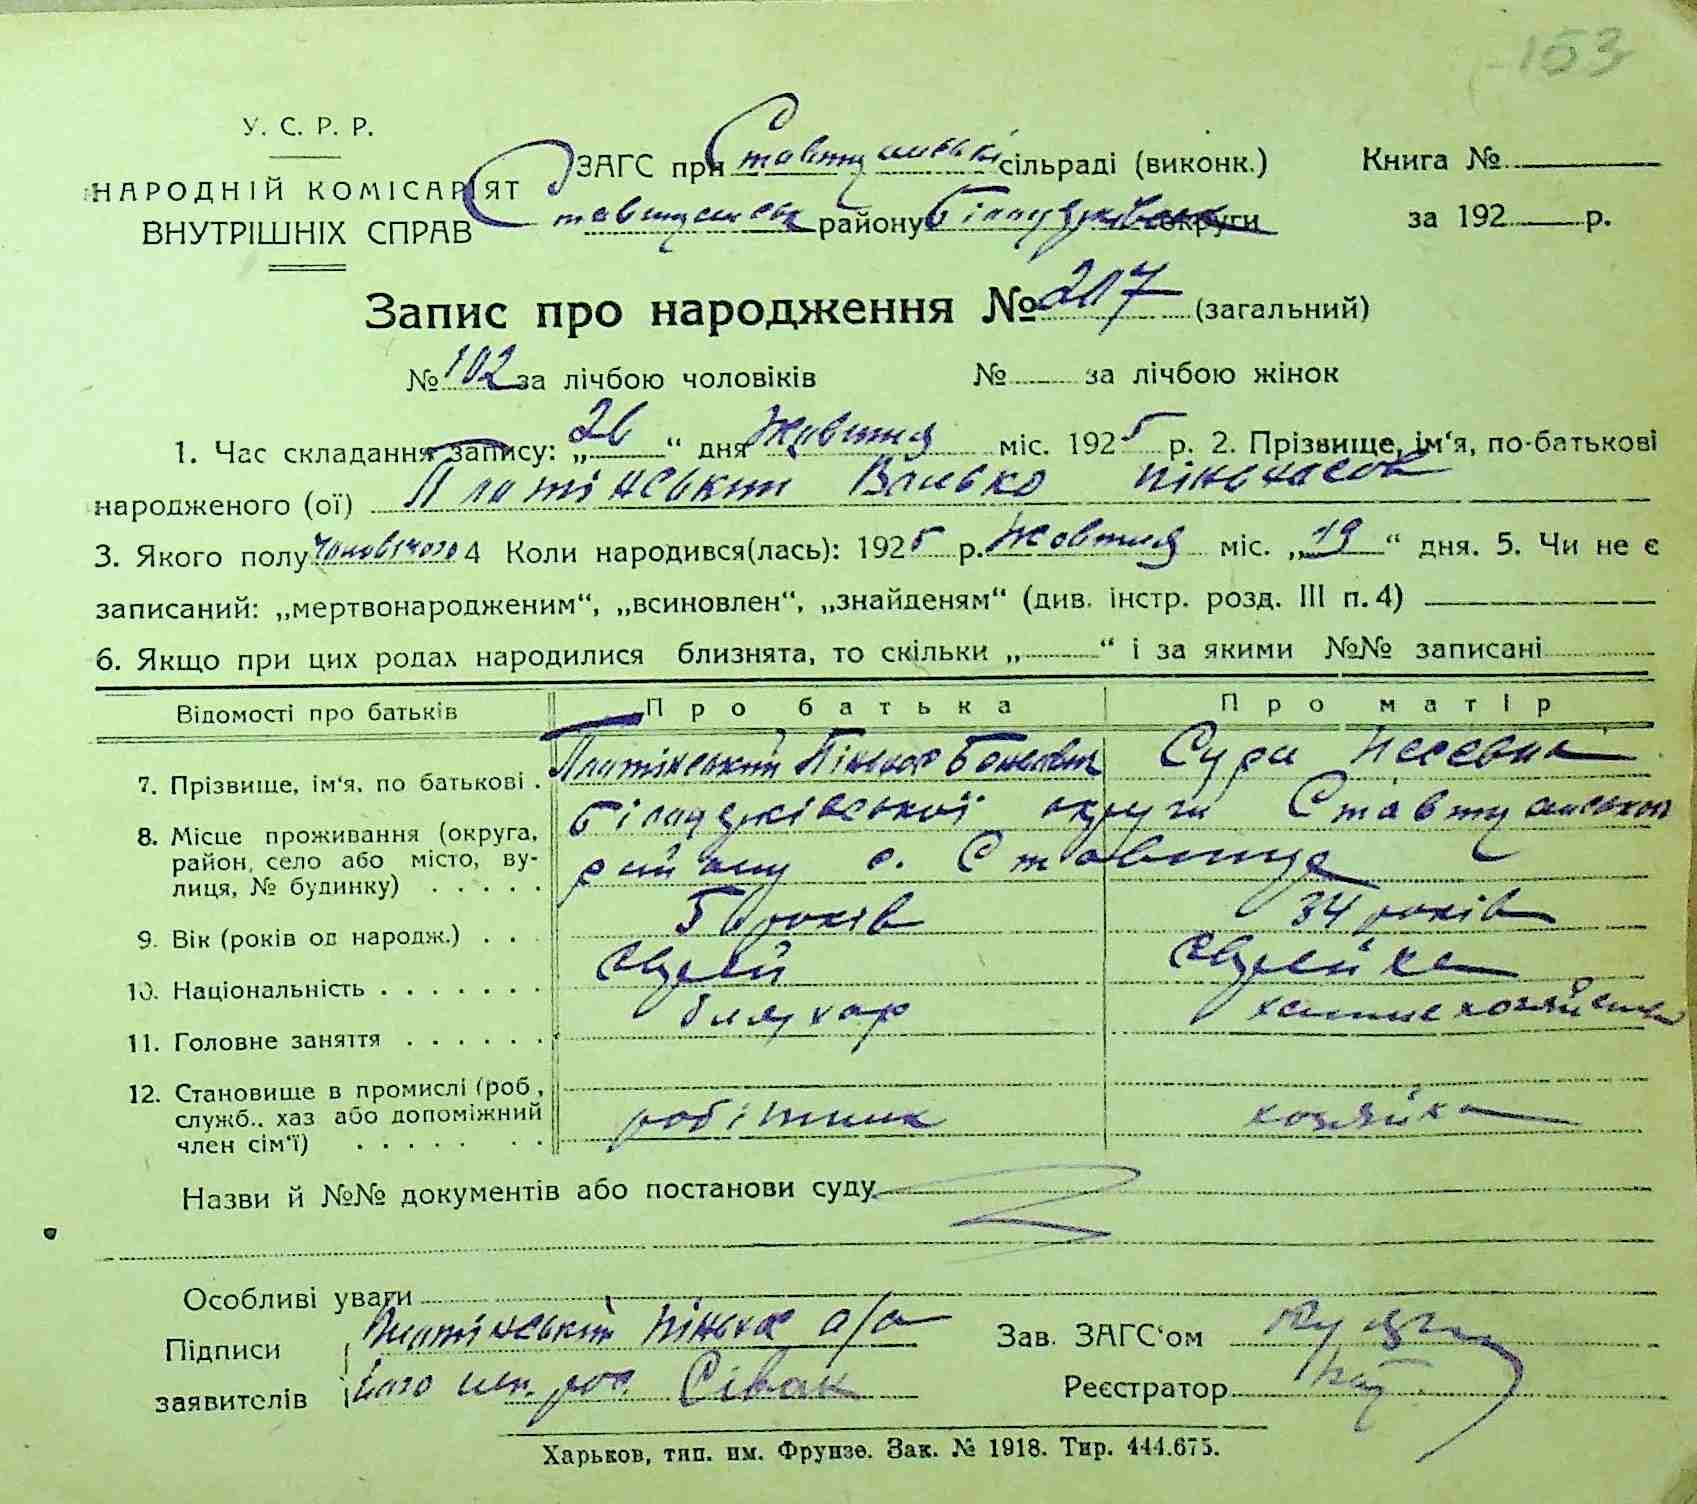 153
У. С. Р. Р.
НАРОДНІЙ КОМІСАРІЯТ
ВНУТРІШНІХ СПРАВ
ЗАГС при Ставищанські сільраді (виконк.)
Ставищанськ району Білоцерківськ округи
Книга №
за 192 р.
Запис про народження № 207 (загальний)
№ 102 за лічбою чоловіків № за лічбою жінок
1. Час складання запису: „26“ дня Жовтня міс. 1925 р. 2. Прізвище, ім‘я, по-батькові
народженого (ої) Платінський Велько Піньхасов
3. Якого полу чоловічого 4 Коли народився(лась): 1925 р. Жовтня міс. „19“ дня. 5. Чи не є
записаний: „мертвонародженим“, „всиновлен“, „знайденям“ (див. інстр. розд. III п. 4)
6. Якщо при цих родах народилися близнята, то скільки „ “ і за якими №№ записані
Відомості про батьків Про батька Про матір
7. Прізвище, ім‘я, по батькові . Платінський Піньхас Сура
8. Місце проживання (округа, район, село або місто, вулиця, № будинку) . . . . . Білоцерківської округи Ставищанського
району с. Ставище
9. Вік (років од народж.) . . . років 34 років
10. Національність . . . . . . . єврей єврейка
11. Головне заняття . . . . . . . бляхар
12. Становище в промислі (роб., служб., хаз або допоміжний член сім‘ї) . . . . . . . робітник хозяйка
Назви й №№ документів або постанови суду
Особливі уваги
Підписи Платінський Піньхас а/с Зав. ЗАГС‘ом
заявителів Сівак Реєстратор
Харьков, тип. им. Фрунзе. Зак. № 1918. Тир. 444.675.